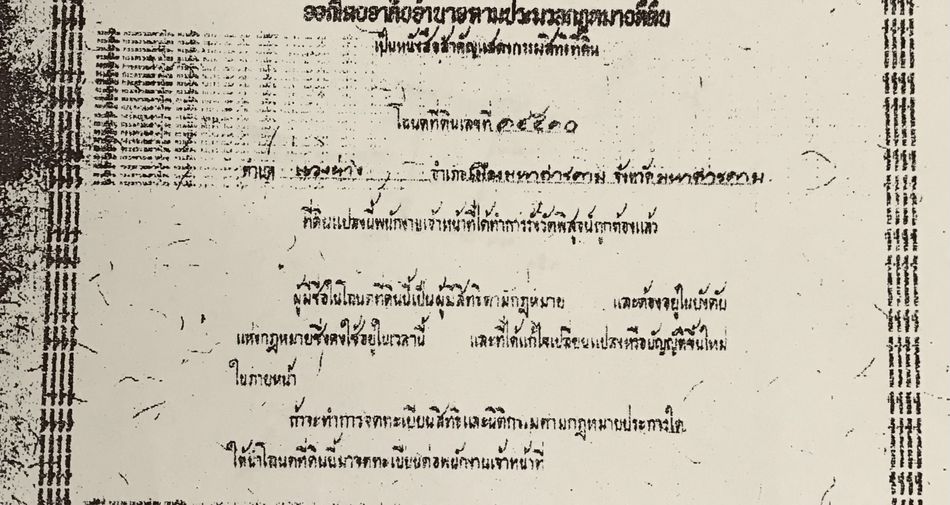 ออกโดยอาศัยอำนาจตามประมวลกฎหมายที่ดิน
เป็นหนังสือสำคัญแสดงกรรมสิทธิ์ที่ดิน
โฉนดที่ดินเลขที่
ตำบล อำเภอเมืองมหาสารคาม จังหวัดมหาสารคาม
ที่ดินแปลงนี้พนักงานเจ้าหน้าที่ได้ทำการรังวัดพิสูจน์ถูกต้องแล้ว
ผู้มีชื่อในโฉนดที่ดินนี้เป็นผู้มีสิทธิตามกฎหมาย และต้องอยู่ในบังคับ
แห่งกฎหมายซึ่งคงใช้อยู่ในเวลานี้ และที่ได้แก้ไขเปลี่ยนแปลงหรือบัญญัติขึ้นใหม่
ในภายหน้า
ถ้าจะทำการจดทะเบียนสิทธิและนิติกรรมตามกฎหมายประการใด
ให้นำโฉนดที่ดินนี้มาจดทะเบียนต่อพนักงานเจ้าหน้าที่